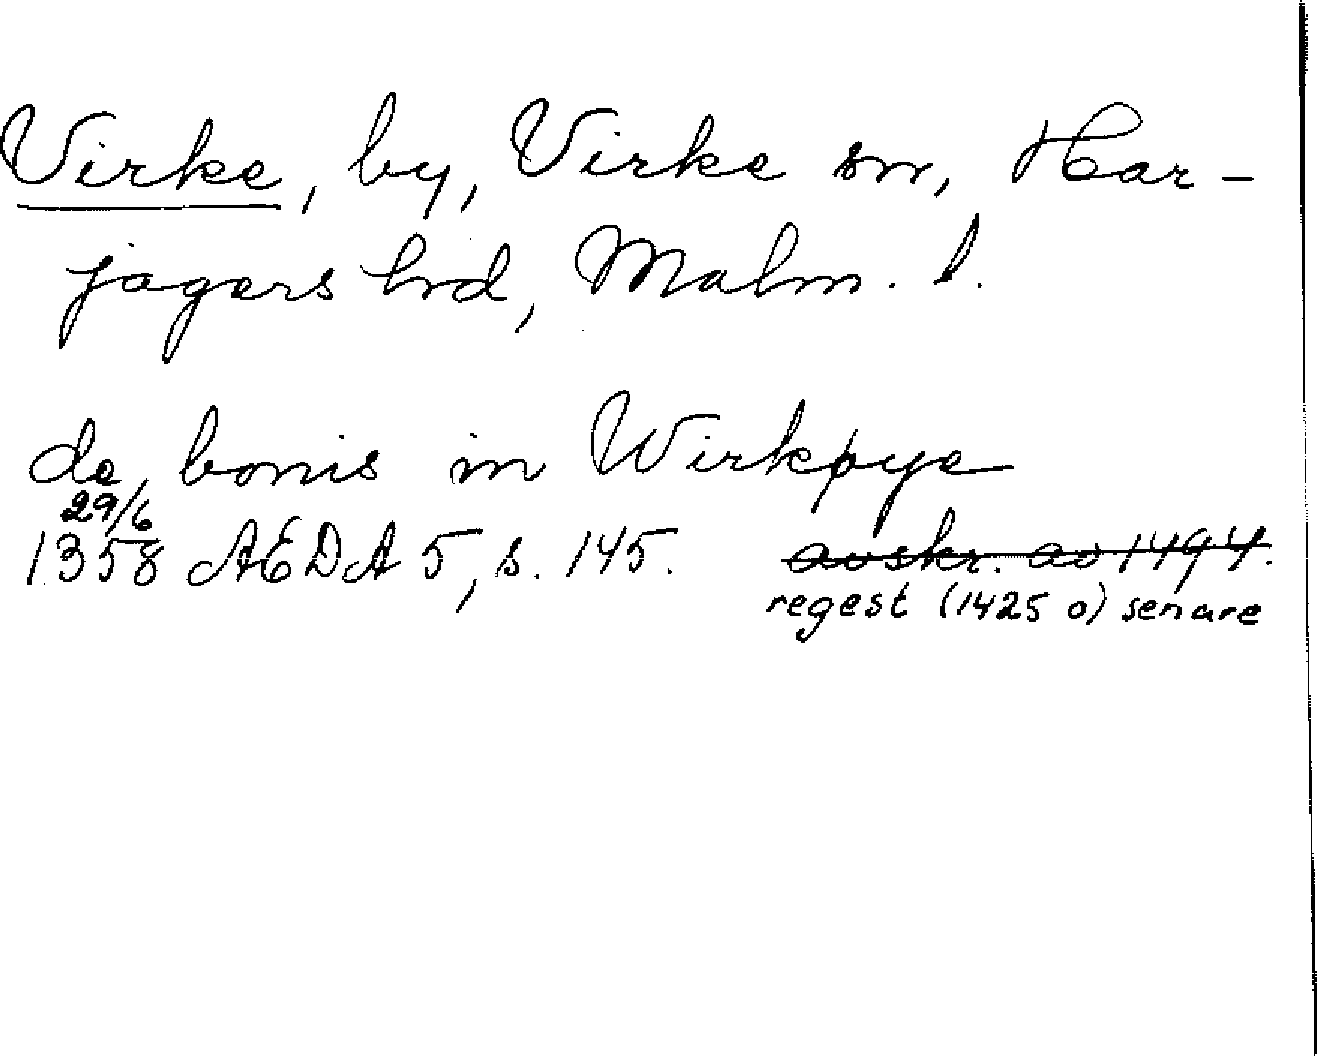 Virke, by, Virke sn, Har-
jagers hrd, Malm. l.
de bonis in Wirkøye
29/6
1358 AEDA 5, s. 145. avskr. av 1494.
regest (1425 o) senare